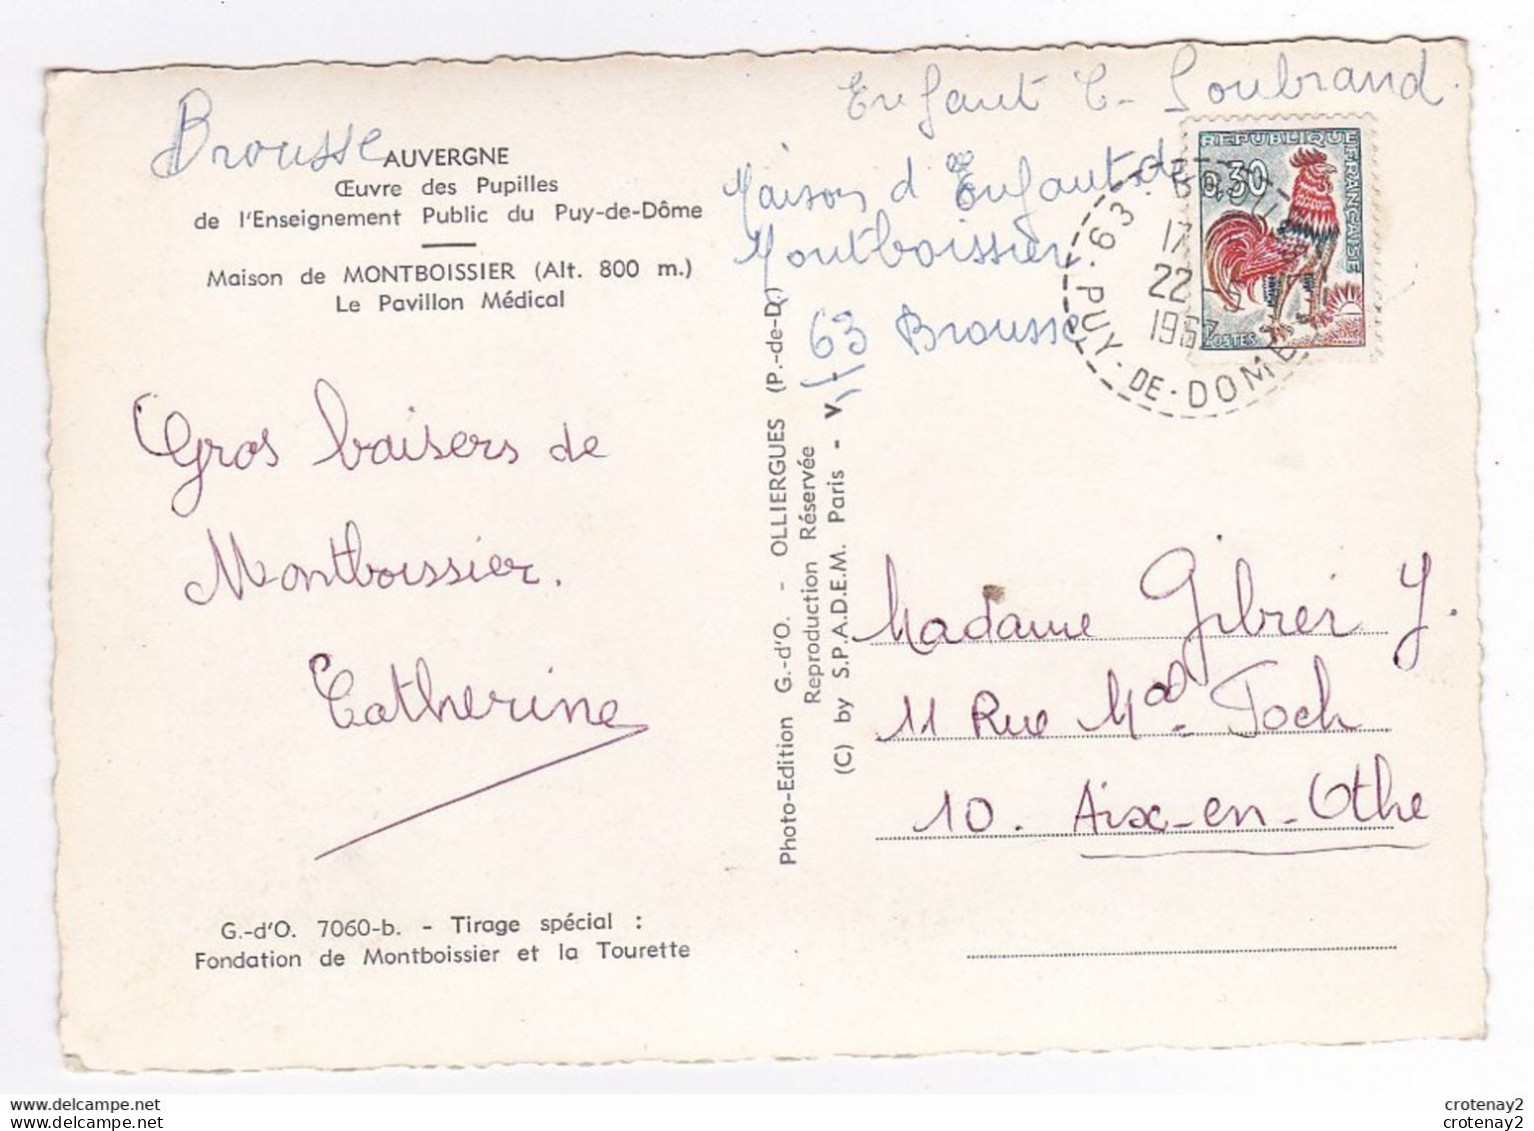 Brousse
AUVERGNE
Œuvre des Pupilles
de l'Enseignement Public du Puy-de-Dôme
Maison de MONTBOISSIER (Alt. 800 m.)
Le Pavillon Médical
Gros baisers de
Montboissier.
Catherine
G.-d'O. 7060-b. - Tirage spécial :
Fondation de Montboissier et la Tourette
Photo-Edition G.-d'O. - OLLIERGUES (P.-de-D.)
Reproduction Réservée
(C) by S.P.A.D.E.M. Paris - V
Enfant C. Soubrand.
Maison d'Enfants de
Montboissier
63 Brousse
REPUBLIQUE FRANÇAISE
0,30
POSTES
63
17
22
1967
PUY-DE-DOME
Madame Gibrier Y.
11 Rue Mal Foch
10. Aix-en-Othe
crotenay2
crotenay2
crotenay2
crotenay2